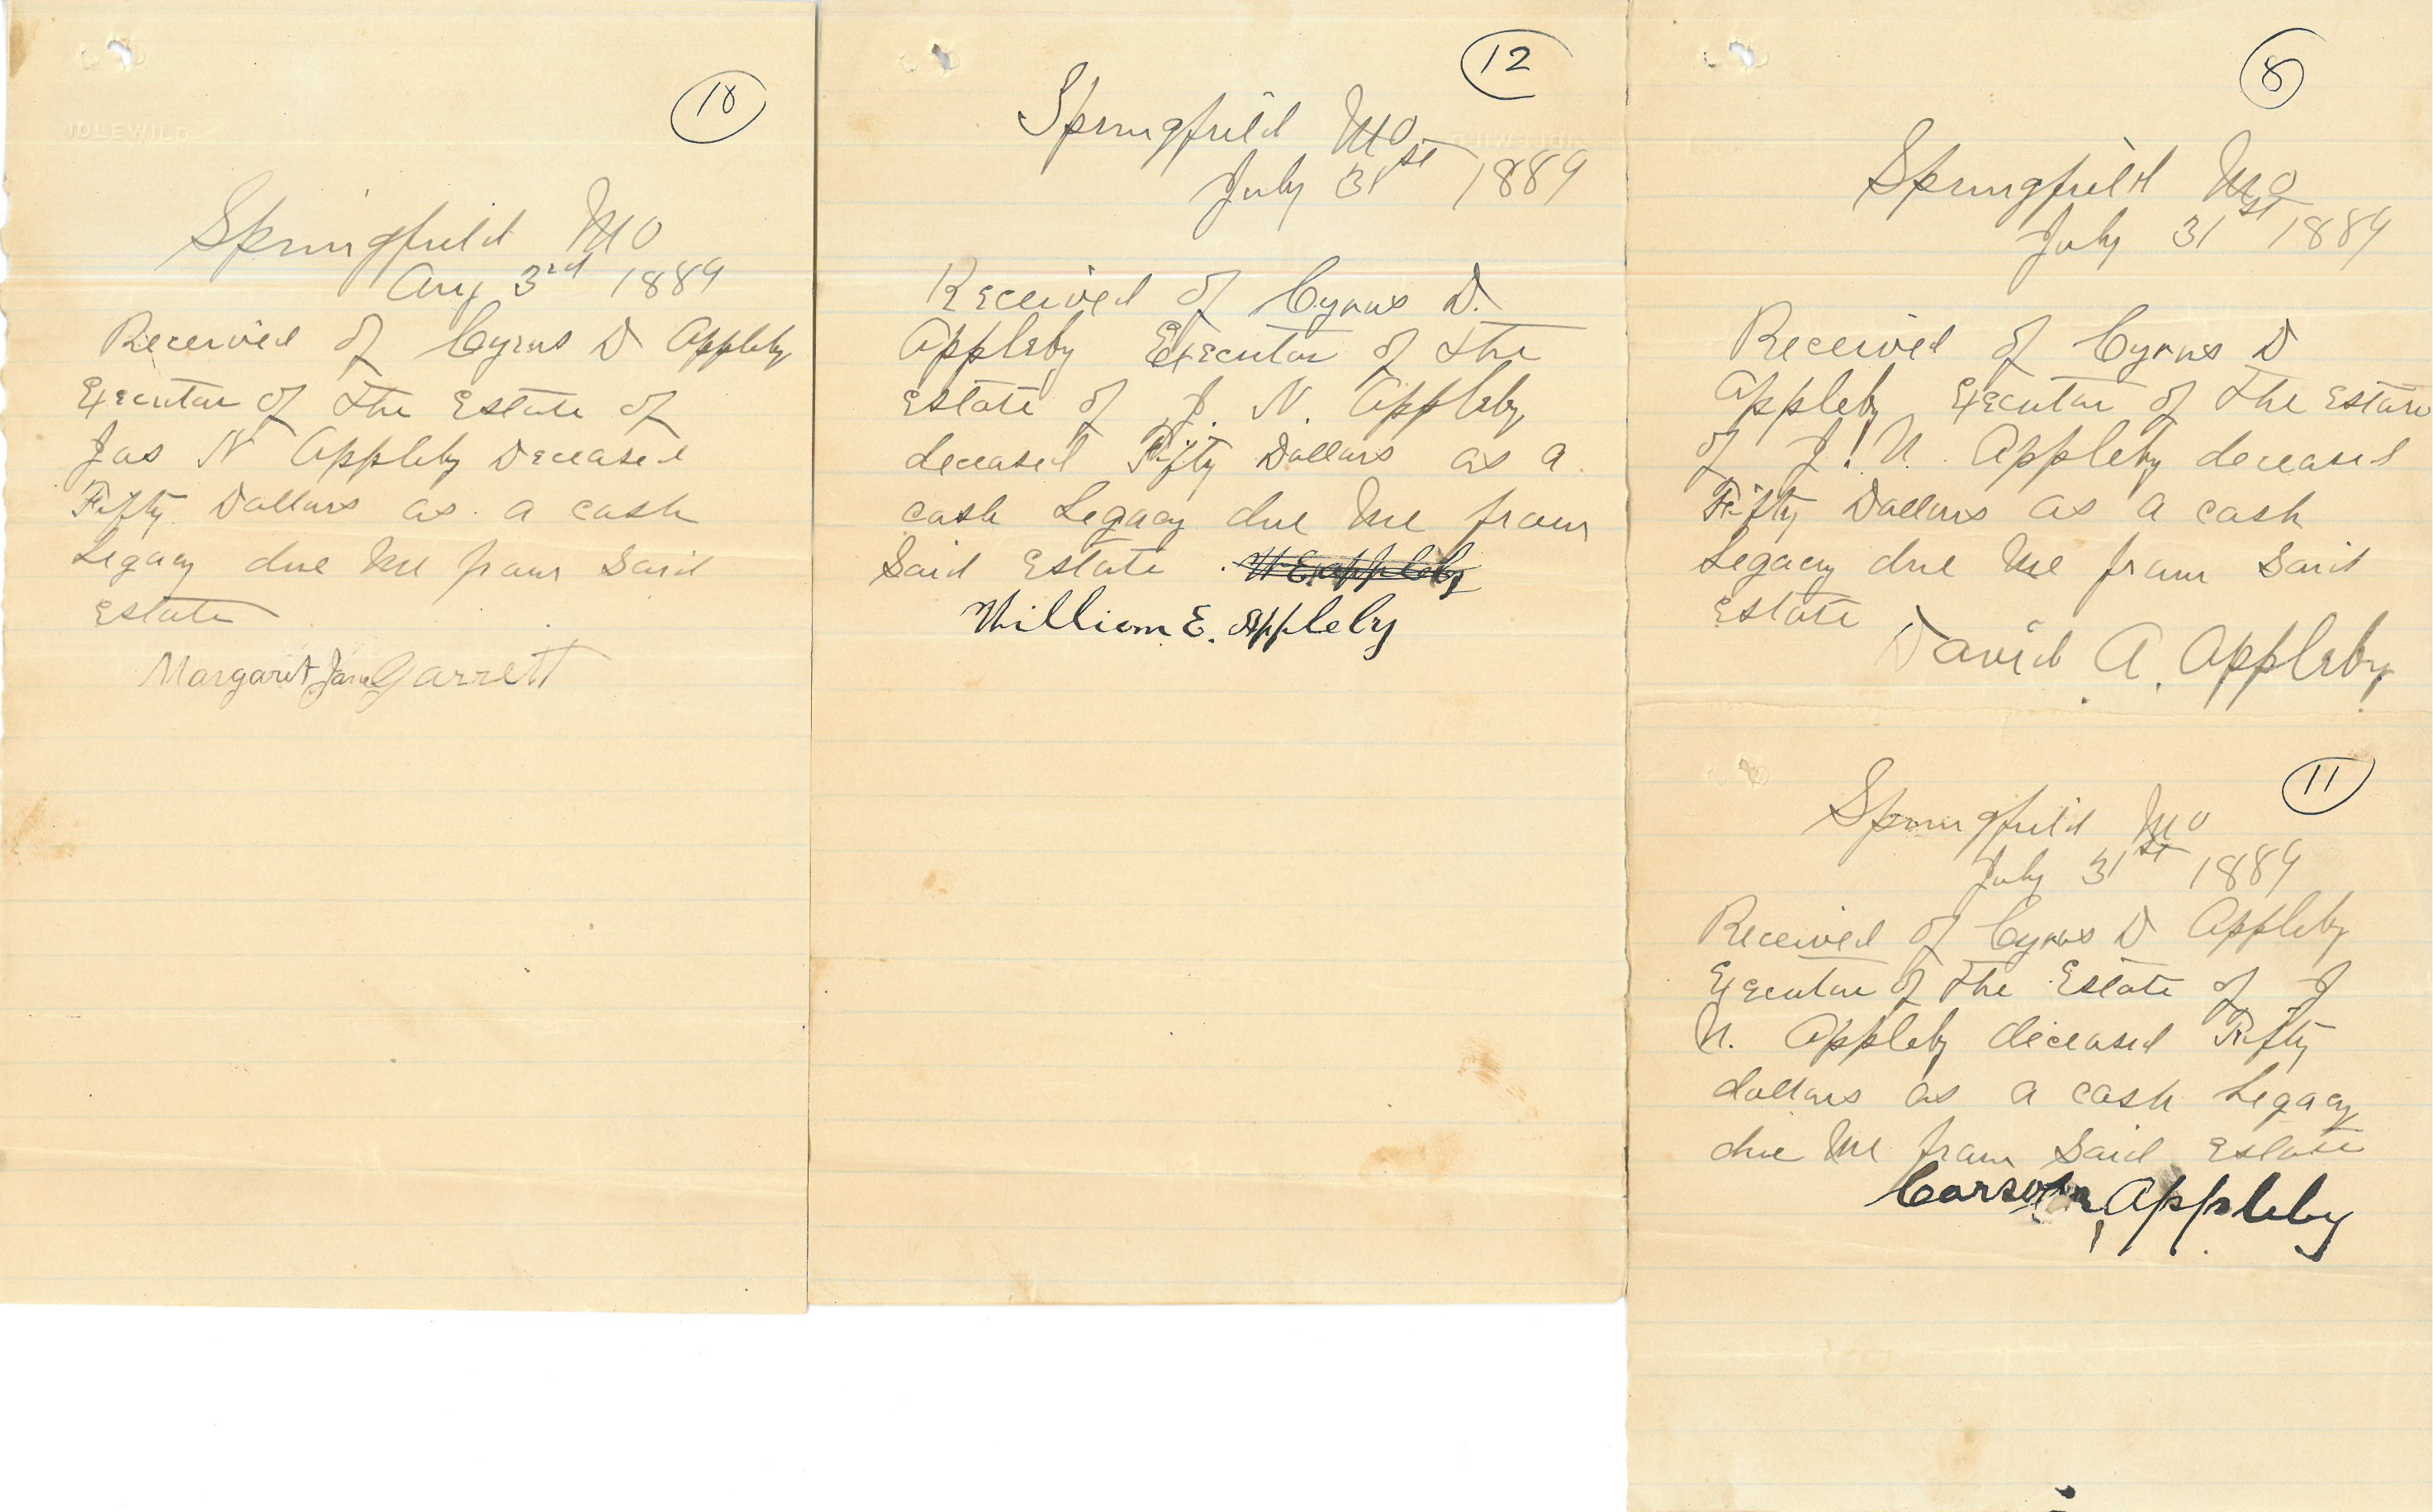 10
IDLEWILD
Springfield Mo
Aug 3rd 1889
Received of Cyrus D Appleby
Executor of the Estate of
Jas N Appleby Deceased
Fifty Dollars as a cash
Legacy due Me from Said
Estate
Margaret Jane Garrett
12
Springfield Mo
July 31st 1889
Received of Cyrus D.
Appleby Executor of the
Estate of J. N. Appleby
deceased Fifty Dollars as a
cash Legacy due Me from
Said Estate W E Appleby
William E. Appleby
8
Springfield Mo
July 31st 1889
Received of Cyrus D
Appleby Executor of the Estate
of J. N. Appleby deceased
Fifty Dollars as a cash
Legacy due Me from Said
Estate
David A. Appleby
11
Springfield Mo
July 31st 1889
Received of Cyrus D Appleby
Executor of the Estate of J
N. Appleby deceased Fifty
dollars as a cash Legacy
due Me from Said Estate
Carson Appleby